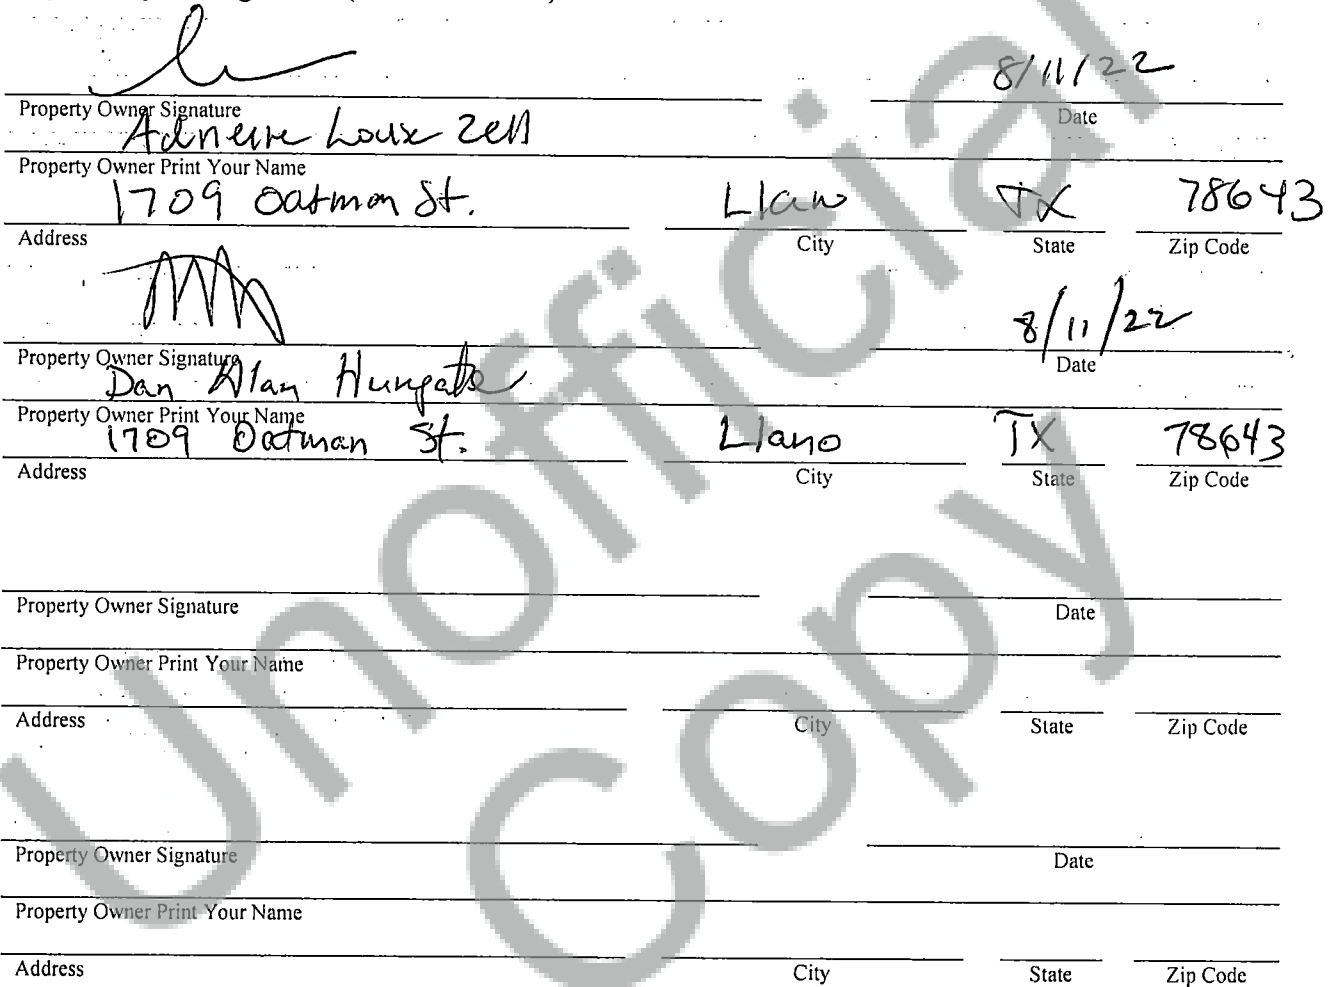 8/11/22
Property Owner Signature Date
Loux Zell
Property Owner Print Your Name
1709 Oatman St. Llano TX 78643
Address City State Zip Code
8/11/22
Property Owner Signature Date
Dan Alan Hungate
Property Owner Print Your Name
1709 Oatman St. Llano TX 78643
Address City State Zip Code
Property Owner Signature Date
Property Owner Print Your Name
Address City State Zip Code
Property Owner Signature Date
Property Owner Print Your Name
Address City State Zip Code
Unofficial
Copy